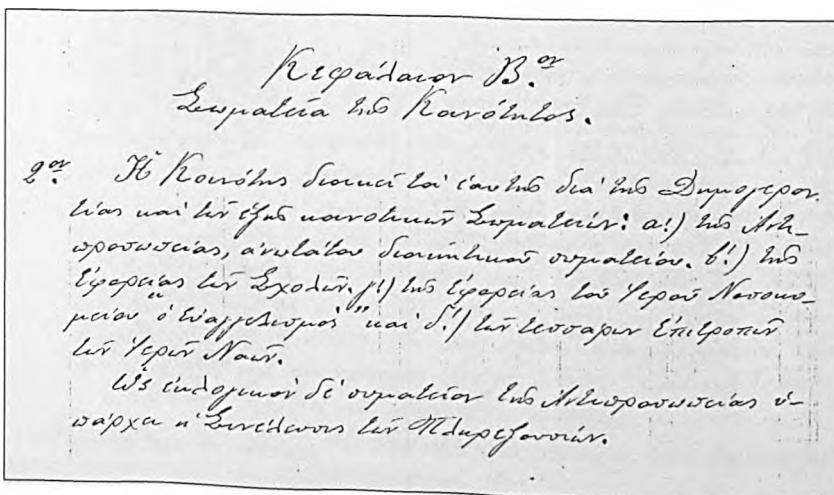 Κεφάλαιον Β.ον
Σωματεία της Κοινότητος.
2ον. Ἡ Κοινότης διοικεῖ τὰ ἑαυτῆς διὰ τῆς Δημογερον
τίας καὶ τῶν ἑξῆς κοινοτικῶν Σωματείων: α!) τῆς Ἀντι-
προσωπείας, ἀνωτάτου διοικητικοῦ σωματείου. β!) τῆς
Ἐφορείας τῶν Σχολῶν. γ!) τῆς Ἐφορείας τοῦ Ἱεροῦ Νοσοκο-
μείου "ὁ Εὐαγγελισμὸς" καὶ δ!) τῶν τεσσάρων Ἐπιτροπῶν
τῶν Ἱερῶν Ναῶν.
Ὡς ἐκλογικὸν δὲ σωματεῖον τῆς Ἀντιπροσωπείας ὑ-
πάρχει ἡ Συνέλευσις τῶν Πληρεξουσίων.